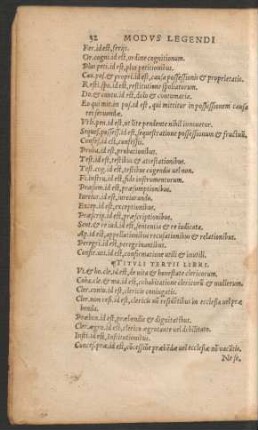 32 MODVS LEGENDI
Fer.id est, ferijs.
Or.cogni.id est, ordine cognitionum.
Plus peti.id est, plus petitionibus.
Cau.pos.& propri.id est, causa possessionis & proprietatis.
Resti.spo.id est, restitutione spoliatorum.
Do.& contu.id est, dolo & contumacia.
Eo qui mit.in pos.id est, eo qui mittitur in possessionem causa
rei seruandæ.
Vt li.pen.id est, ut lite pendente nihil innouetur.
Seques.possess.id est, sequestratione possessionum & fructuū.
Confes.id est, confessis.
Proba.id est, probationibus.
Testi.id est, testibus & attestationibus.
Test.cog.id est, testibus cogendis uel non.
Fi.instru.id est, fide instrumentorum.
Præsum.id est, præsumptionibus.
Iureiur.id est, iureiurando.
Excep.id est, exceptionibus.
Præscrip.id est, præscriptionibus.
Sent.& re iud.id est, sententia & re iudicata.
Ap.id est, appellationibus recusationibus & relationibus.
Peregri.id est, peregrinantibus.
Confir.uti.id est, confirmatione utili & inutili.
TITVLI TERTII LIBRI.
Vi.& ho.cle.id est, de uita & honestate clericorum.
Coha.cle.& mu.id est, cohabitatione clericorū & mulierum.
Cler.coniu.id est, clericis coniugatis.
Cler.non resi.id est, clericis nō residētibus in ecclesia uel præ
benda.
Præben.id est, præbendis & dignitatibus.
Cler.ægro.id est, clerico ægrotante uel debilitato.
Insti.id est, Institutionibus.
Conces.præ.id est, cōcessiōe præbēdæ uel ecclesiæ nō vacātis.
Ne se.